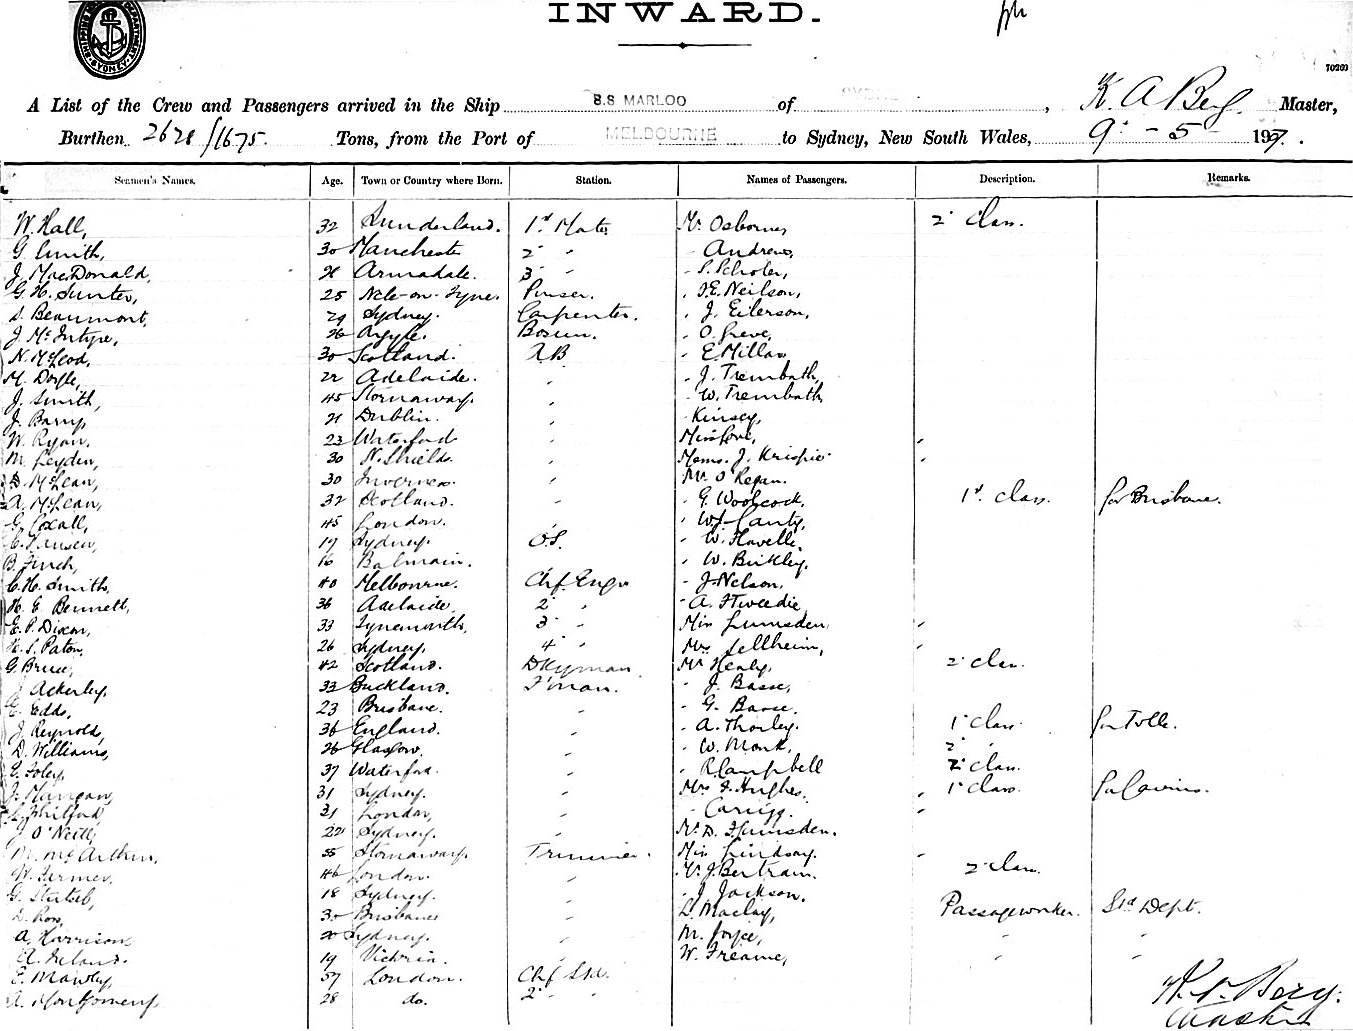 INWARD.
70260
A List of the Crew and Passengers arrived in the Ship S.S MARLOO of , K. A Berg Master,
Burthen 2628/1675. Tons, from the Port of MELBOURNE to Sydney, New South Wales, 9 - 5 - 19
Seamen's Names. Age. Town or Country where Born. Station. Names of Passengers. Description. Remarks.
W. Hall, 32 Sunderland. 1st Mate Mr Osborne, 2 Class.
G. Smith, 30 Manchester 2 " " Andrews,
J. MacDonald, Armadale. 3 " " S. Scholer,
G. H. Sunter, 25 Ncle-on-Tyne. Purser. " J.E. Neilson,
S. Beaumont, 29 Sydney. Carpenter. " J. Eilerson,
J. McIntyre, 26 Argyle. Bosun. " O. Greve,
N. McLeod, 30 Scotland. A.B " E. Millar
M. Doyle, 22 Adelaide. " " J. Trembath,
J. Smith, 45 Stornaway. " " W. Trembath
J. Barry, 21 Dublin. " " Kinsey,
W. Ryan, 23 Waterford " Miss Love, "
M. Leyden, 30 N. Shields. " J. Krispie "
D. McLean, 30 Inverness. " Mr O'Regan.
A. McLean, 32 Scotland. " " G. Woolcock, 1st Class. for Brisbane.
G. Coxall, 45 London. " Canty,
Hansen, 19 Sydney. O.S. " W.
B. Finch, 16 Balmain. " " W. Birkley,
C. H. Smith, 40 Melbourne. Chf. Engr " J. Nelson,
H. E Bennett, 36 Adelaide, 2 " " A. Tweedie
E. P. Dixon, 33 Tynemouth, 3 " Miss Lumsden "
H. S. Paton, 26 Sydney, 4 " Mrs Sellheim,
G. Bruce, 42 Scotland. Dkyman. Mr Healy, 2 Class.
Ackerley, 33 Buckland. F'man. " J. Basse,
E. Edds, 23 Brisbane. " " G. Basse.
J. Reynolds, 36 England. " " A. Thorley. 1 Class for
D. Williams, 26 Glasgow. " " W. Monk, 2 "
E. Foley, 37 Waterford. " " R Campbell 2 Class.
J. Mangan, 31 Sydney. " Mrs Hughes, 1 Class. for Cairns.
Philford, 31 London, " " "
J O'Neill, 22 Sydney. " Mr D. Lumsden.
M. McArthur, 35 Stornaway. Trimmer. Miss Lindsay. "
W. Farmer, 46 London. " Mr J. Bertram. 2 Class.
G. 18 Sydney. " " J Jackson.
D. Ross, 30 Brisbane " D. Maclay, Passageworker. Std Dept.
A. Harrison, 20 Sydney. " M. Joyce, " "
A. Ireland. 19 Victria. " W. Freame, " "
E. Mawley, 57 London. Chf Std.
A. Montgomery, 28 do. 2 " "
Berg.
Master